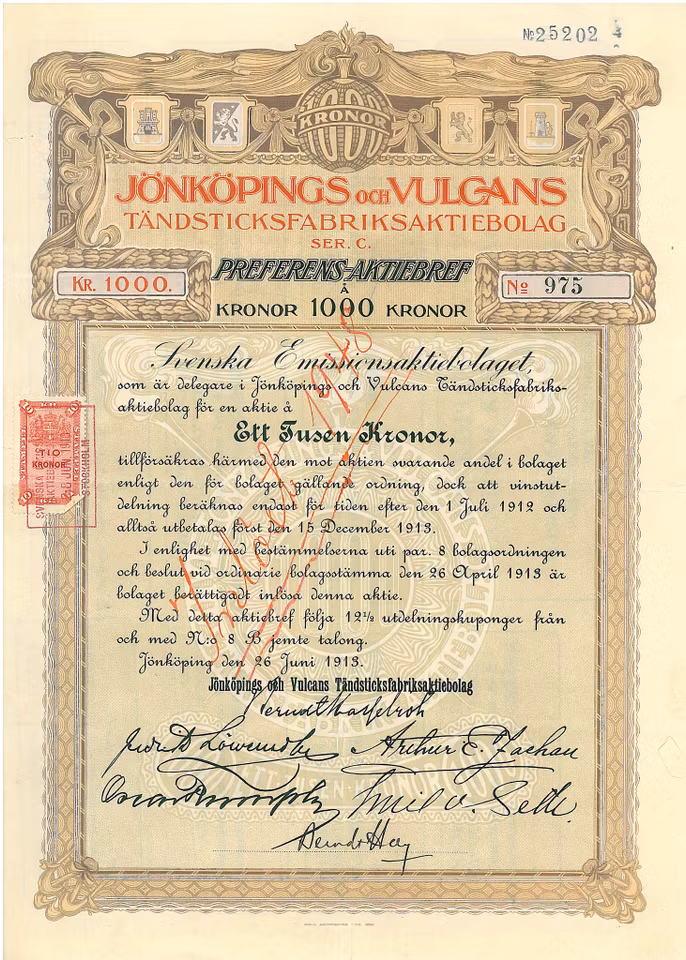 No 25202
1000
KRONOR
JÖNKÖPINGS OCH VULCANS
TÄNDSTICKSFABRIKSAKTIEBOLAG
SER. C.
PREFERENS-AKTIEBREF
KR. 1000.
Å
No 975
KRONOR 1000 KRONOR
Svenska Emissionsaktiebolaget,
som är delegare i Jönköpings och Vulcans Tändsticksfabriks-
aktiebolag för en aktie å
Ett Tusen Kronor,
tillförsäkras härmed den mot aktien svarande andel i bolaget
enligt den för bolaget gällande ordning, dock att vinstut-
delning beräknas endast för tiden efter den 1 Juli 1912 och
alltså utbetalas först den 15 December 1913.
I enlighet med bestämmelserna uti par. 8 bolagsordningen
och beslut vid ordinarie bolagsstämma den 26 April 1913 är
bolaget berättigadt inlösa denna aktie.
Med detta aktiebref följa 12½ utdelningskuponger från
och med N:o 8 B jemte talong.
Jönköping den 26 Juni 1913.
Jönköpings och Vulcans Tändsticksfabriksaktiebolag
Berndt Hasselrot
Fredrik Löwenadler Arthur E. Zachau
Emil v. Sett.
Berndt Hay
Inlöst 1948
10 10
TIO
KRONOR
STOCKHOLM